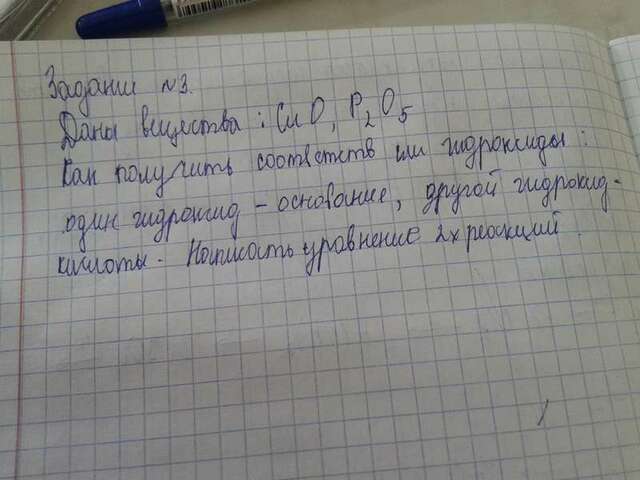 Задании №3.
Даны вещества: CuO, P₂O₅
Как получить соответств им гидроксиды:
один гидроксид - основание, другой гидроксид-
кислоты. Написать уравнение 2х реакций.